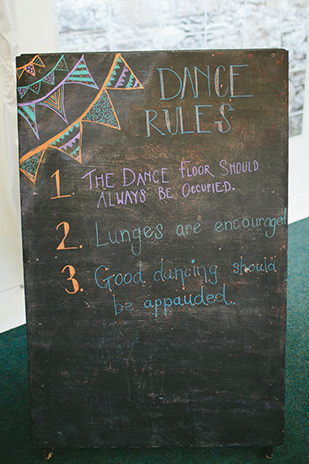 DANCE
RULES
1. THE DANCE FLOOR SHOULD
ALWAYS BE OCCUPIED.
2. Lunges are encouraged
3. Good dancing should
be appauded.